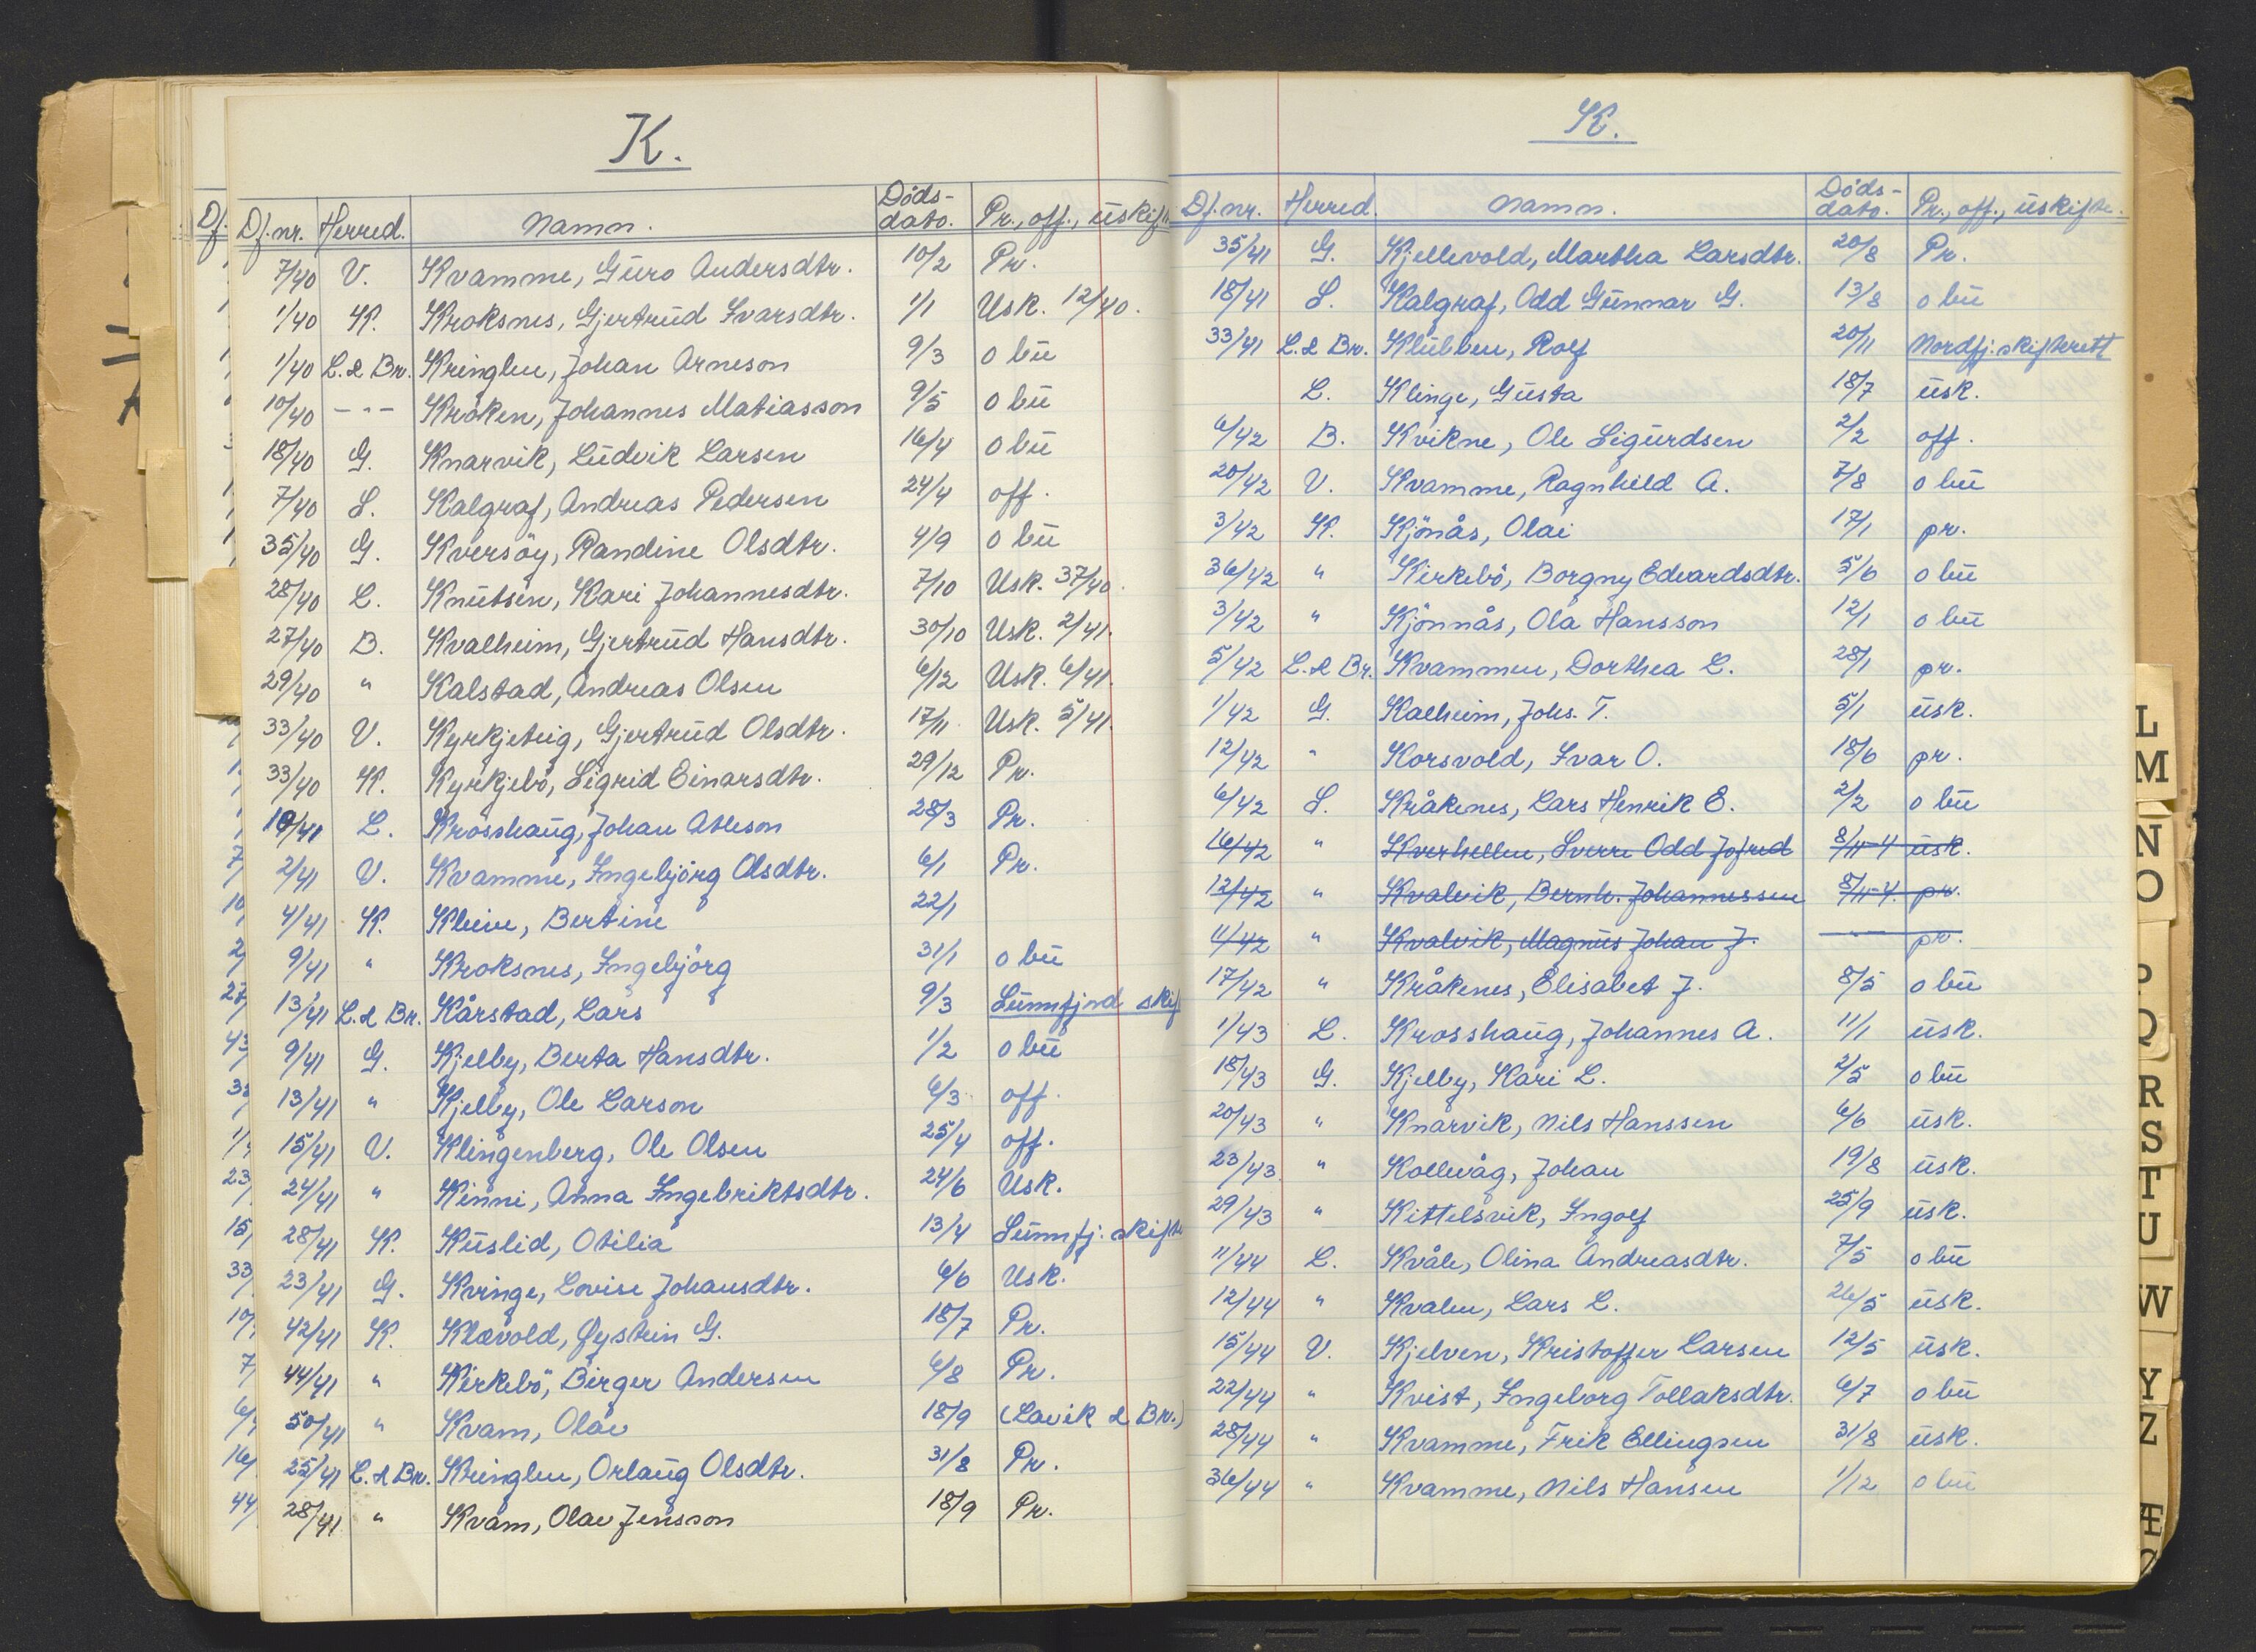 K.
Df.nr. Herred. Namn. Døds-dato. Pr., off., uskifte
7/40 V. Kvamme, Guro Andersdtr. 10/2 Pr.
1/40 K. Kroksnes, Gjertrud Ivarsdtr. 1/1 Usk. 12/40.
1/40 L. & Br. Kringlen, Johan Arneson 9/3 o bu
10/40 -"- Kroken, Johannes Matiasson 9/5 o bu
18/40 G. Knarvik, Ludvik Larsen 16/4 o bu
7/40 S. Kalgraf, Andreas Pedersen 24/4 off.
35/40 G. Kversöy, Randine Olsdtr. 4/9 o bu
28/40 L. Knutsen, Kari Johannesdtr. 7/10 Usk. 37/40.
27/40 B. Kvalheim, Gjertrud Hansdtr. 30/10 Usk. 2/41.
29/40 " Kalstad, Andreas Olsen 6/12 Usk. 6/41.
33/40 V. Kyrkjeteig, Gjertrud Olsdtr. 17/11 Usk. 5/41.
33/40 K. Kyrkjebö, Sigrid Einarsdtr. 29/12 Pr.
L. Krosshaug, Johan Atleson 28/3 Pr.
2/41 V. Kvamme, Ingebjörg Olsdtr. 6/1 Pr.
4/41 K. Kleive, Bertine 22/1
9/41 " Kroksnes, Ingebjörg 31/1 o bu
13/41 L. & Br. Kårstad, Lars 9/3 Sunnfjord skif
9/41 G. Kjelby, Berta Hansdtr. 1/2 o bu
13/41 " Kjelby, Ole Larson 6/3 off.
15/41 V. Klingenberg, Ole Olsen 25/4 off.
24/41 " Kinni, Anna Ingebriktsdtr. 24/6 Usk.
28/41 K. Kuslid, Otilia 13/4 Sunnfj. skifte
23/41 G. Kvinge, Lovise Johansdtr. 6/6 Usk.
42/41 K. Klævold, Øystein G. 18/7 Pr.
44/41 " Kirkebö, Birger Andersen 6/8 Pr.
50/41 " Kvam, Olav 18/9 (Lavik & Br.)
25/41 L. & Br. Kringlen, Orlaug Olsdtr. 31/8 Pr.
28/41 " Kvam, Olav Jensson 18/9 Pr.
K.
Df.nr. Herred. Namn. Døds-dato. Pr., off., uskifte.
35/41 G. Kjellevold, Martha Larsdtr. 20/8 Pr.
18/41 S. Kalgraf, Odd Gunnar G. 13/8 o bu
33/41 L. & Br. Klubben, Rolf 20/11 Nordfj. skifterett
L. Klinge, Gusta 18/7 usk.
6/42 B. Kvikne, Ole Sigurdsen 2/2 off.
20/42 V. Kvamme, Ragnhild A. 7/8 o bu
3/42 K. Kjönås, Olai 17/1 pr.
36/42 " Kirkebö, Borgny Edvardsdtr. 5/6 o bu
3/42 " Kjönnås, Ola Hansson 12/1 o bu
5/42 L. & Br. Kvammen, Dorthea L. 28/1 pr.
1/42 G. Kalheim, Johs. T. 5/1 usk.
12/42 " Korsvold, Ivar O. 18/6 pr.
6/42 S. Kråkenes, Lars Henrik E. 2/2 o bu
16/42 " Kverhellen, Sverre Odd Jofred 8/11-4 usk.
12/42 " Kvalvik, Bernh. Johannessen 8/11-4. pr.
11/42 " Kvalvik, Magnus Johan J. " pr.
17/42 " Kråkenes, Elisabet J. 8/5 o bu
1/43 L. Krosshaug, Johannes A. 11/1 usk.
18/43 G. Kjelby, Kari L. 2/5 o bu
20/43 " Knarvik, Nils Hanssen 6/6 usk.
23/43 " Kollevåg, Johan 19/8 usk.
29/43 " Kittelsvik, Ingolf 25/9 usk.
11/44 L. Kvåle, Olina Andreasdtr. 7/5 o bu
12/44 " Kvalen, Lars L. 26/5 usk.
15/44 V. Kjelven, Kristoffer Larsen 12/5 usk.
22/44 " Kvist, Ingeborg Tollaksdtr. 6/7 o bu
28/44 " Kvamme, Frik Ellingsen 31/8 usk.
36/44 " Kvamme, Nils Hansen 1/12 o bu
L
M
N
O
Q
R
S
T
U
W
Y
Z
Æ